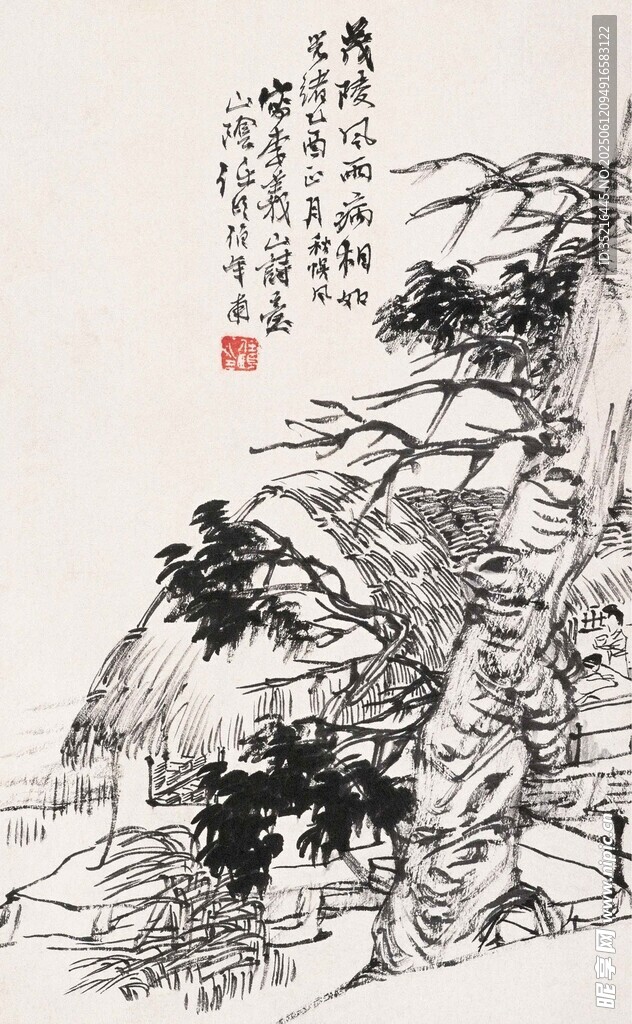 茂陵風雨病相如
光緒乙酉正月秋
寫李義山詩意
山陰任頤伯年甫
ID:35216445 NO:20250612094916583122
昵享网 www.nipic.cn